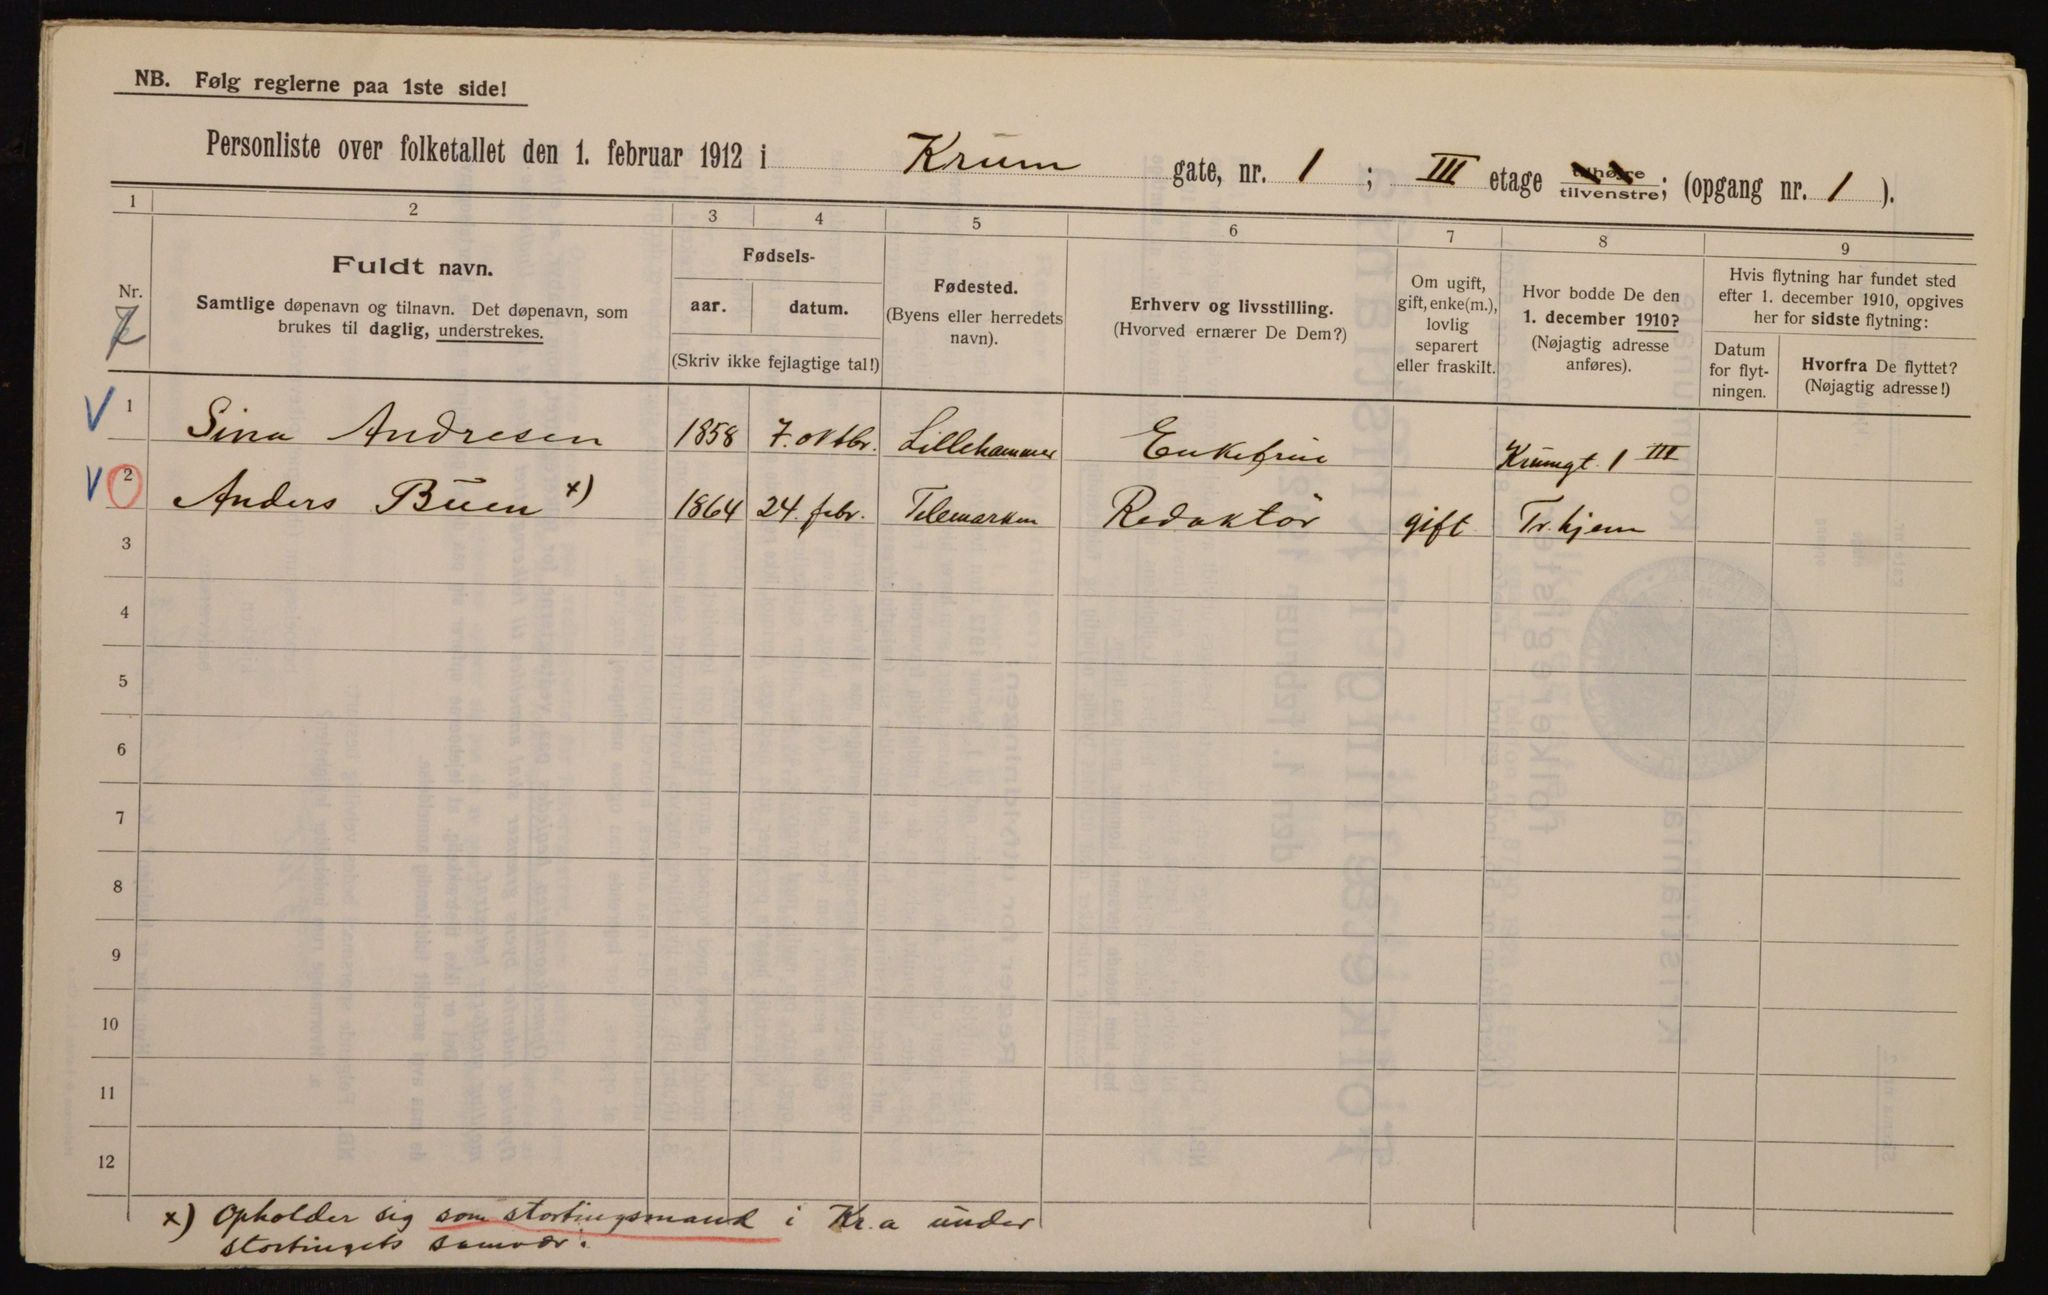 NB. Følg reglerne paa 1ste side!
Personliste over folketallet den 1. februar 1912 i Krum gate, nr. 1 ; III etage tilhøjre tilvenstre; (opgang nr. 1 ).
1 2 3 4 5 6 7 8 9
Nr.
7
Fuldt navn.
Samtlige døpenavn og tilnavn. Det døpenavn, som
brukes til daglig, understrekes.
Fødsels-
aar. datum.
(Skriv ikke fejlagtige tal!)
Fødested.
(Byens eller herredets
navn).
Erhverv og livsstilling.
(Hvorved ernærer De Dem?)
Om ugift,
gift, enke(m.),
lovlig
separert
eller fraskilt.
Hvor bodde De den
1. december 1910?
(Nøjagtig adresse
anføres).
Hvis flytning har fundet sted
efter 1. december 1910, opgives
her for sidste flytning:
Datum
for flyt-
ningen.
Hvorfra De flyttet?
(Nøjagtig adresse!)
V 1 Sina Andresen 1858 7. oktbr. Lillehammer Enkefrue Krumgt. 1 III
V 2 Anders Buen x) 1864 24. febr. Telemarken Redaktør gift Tr.hjem
3
4
5
6
7
8
9
10
11
12
x) Opholder sig som stortingsmand i Kr.a under
stortingets samvær.